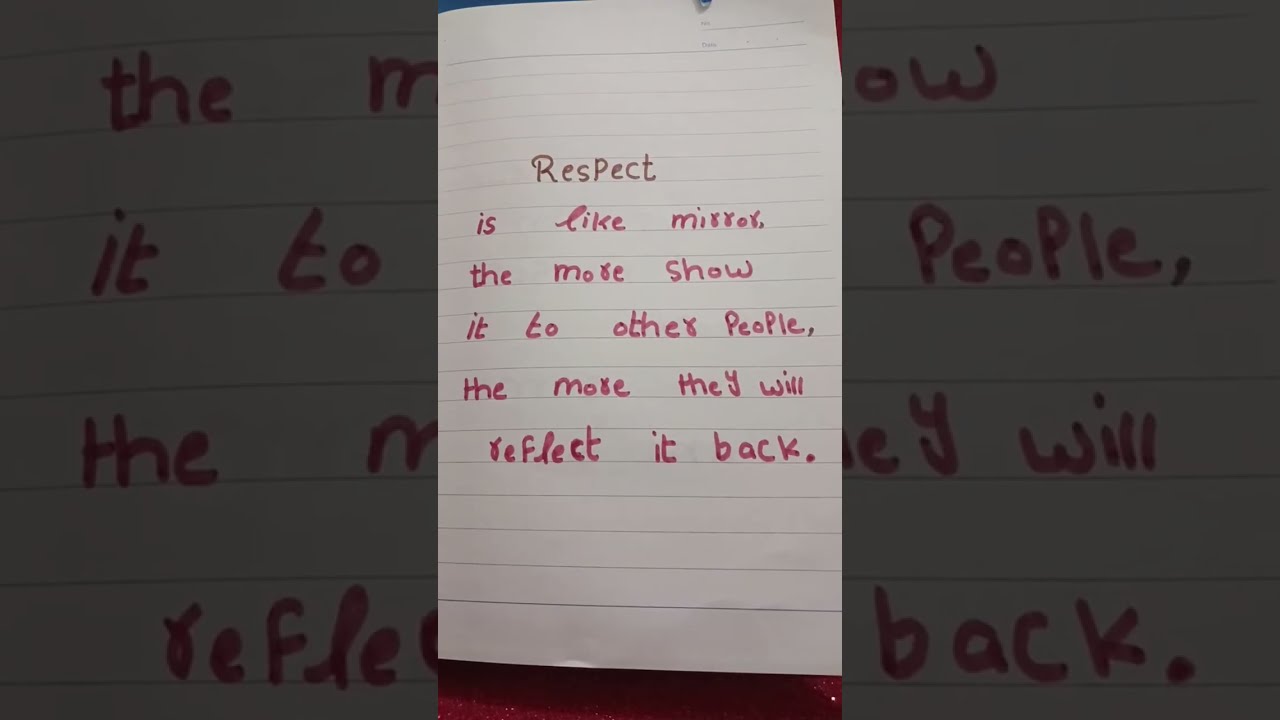 No
Date
Respect
is like mirror.
the more show
it to other People,
the more they will
reflect it back.